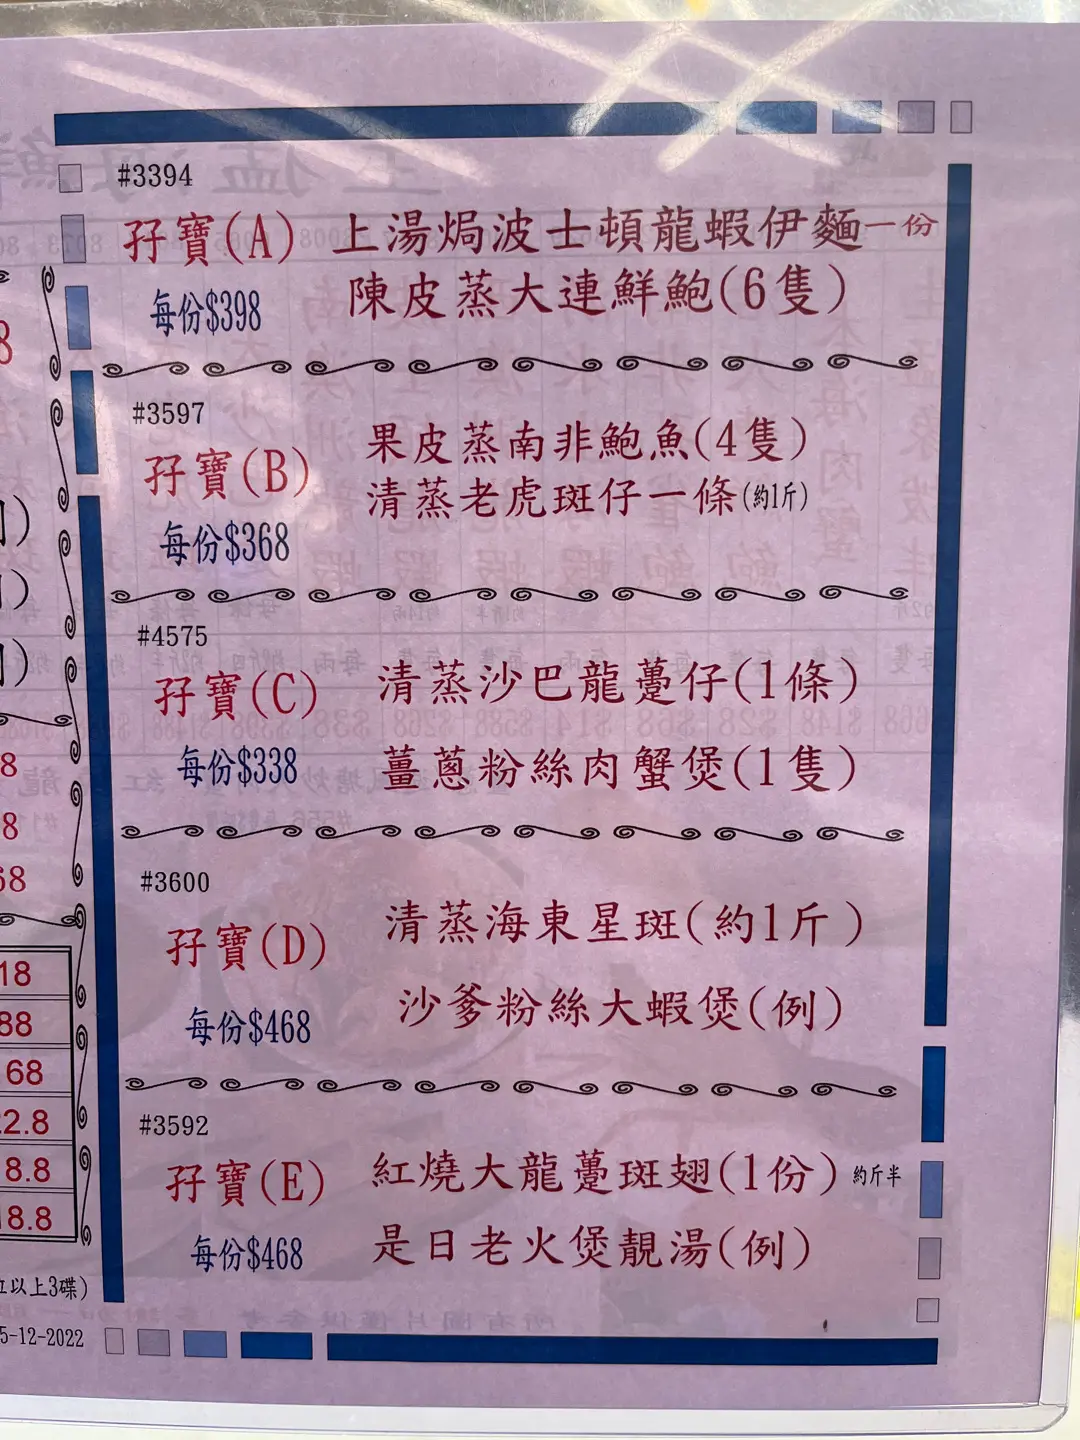 #3394
孖寶(A) 上湯焗波士頓龍蝦伊麵一份
每份$398 陳皮蒸大連鮮鮑(6隻)
#3597
孖寶(B) 果皮蒸南非鮑魚(4隻)
每份$368 清蒸老虎斑仔一條(約1斤)
#4575
孖寶(C) 清蒸沙巴龍躉仔(1條)
每份$338 薑蔥粉絲肉蟹煲(1隻)
#3600
孖寶(D) 清蒸海東星斑(約1斤)
每份$468 沙爹粉絲大蝦煲(例)
#3592
孖寶(E) 紅燒大龍躉斑翅(1份) 約斤半
每份$468 是日老火煲靚湯(例)
8
8
8
68
18
88
68
2.8
8.8
8.8
以上3碟)
5-12-2022